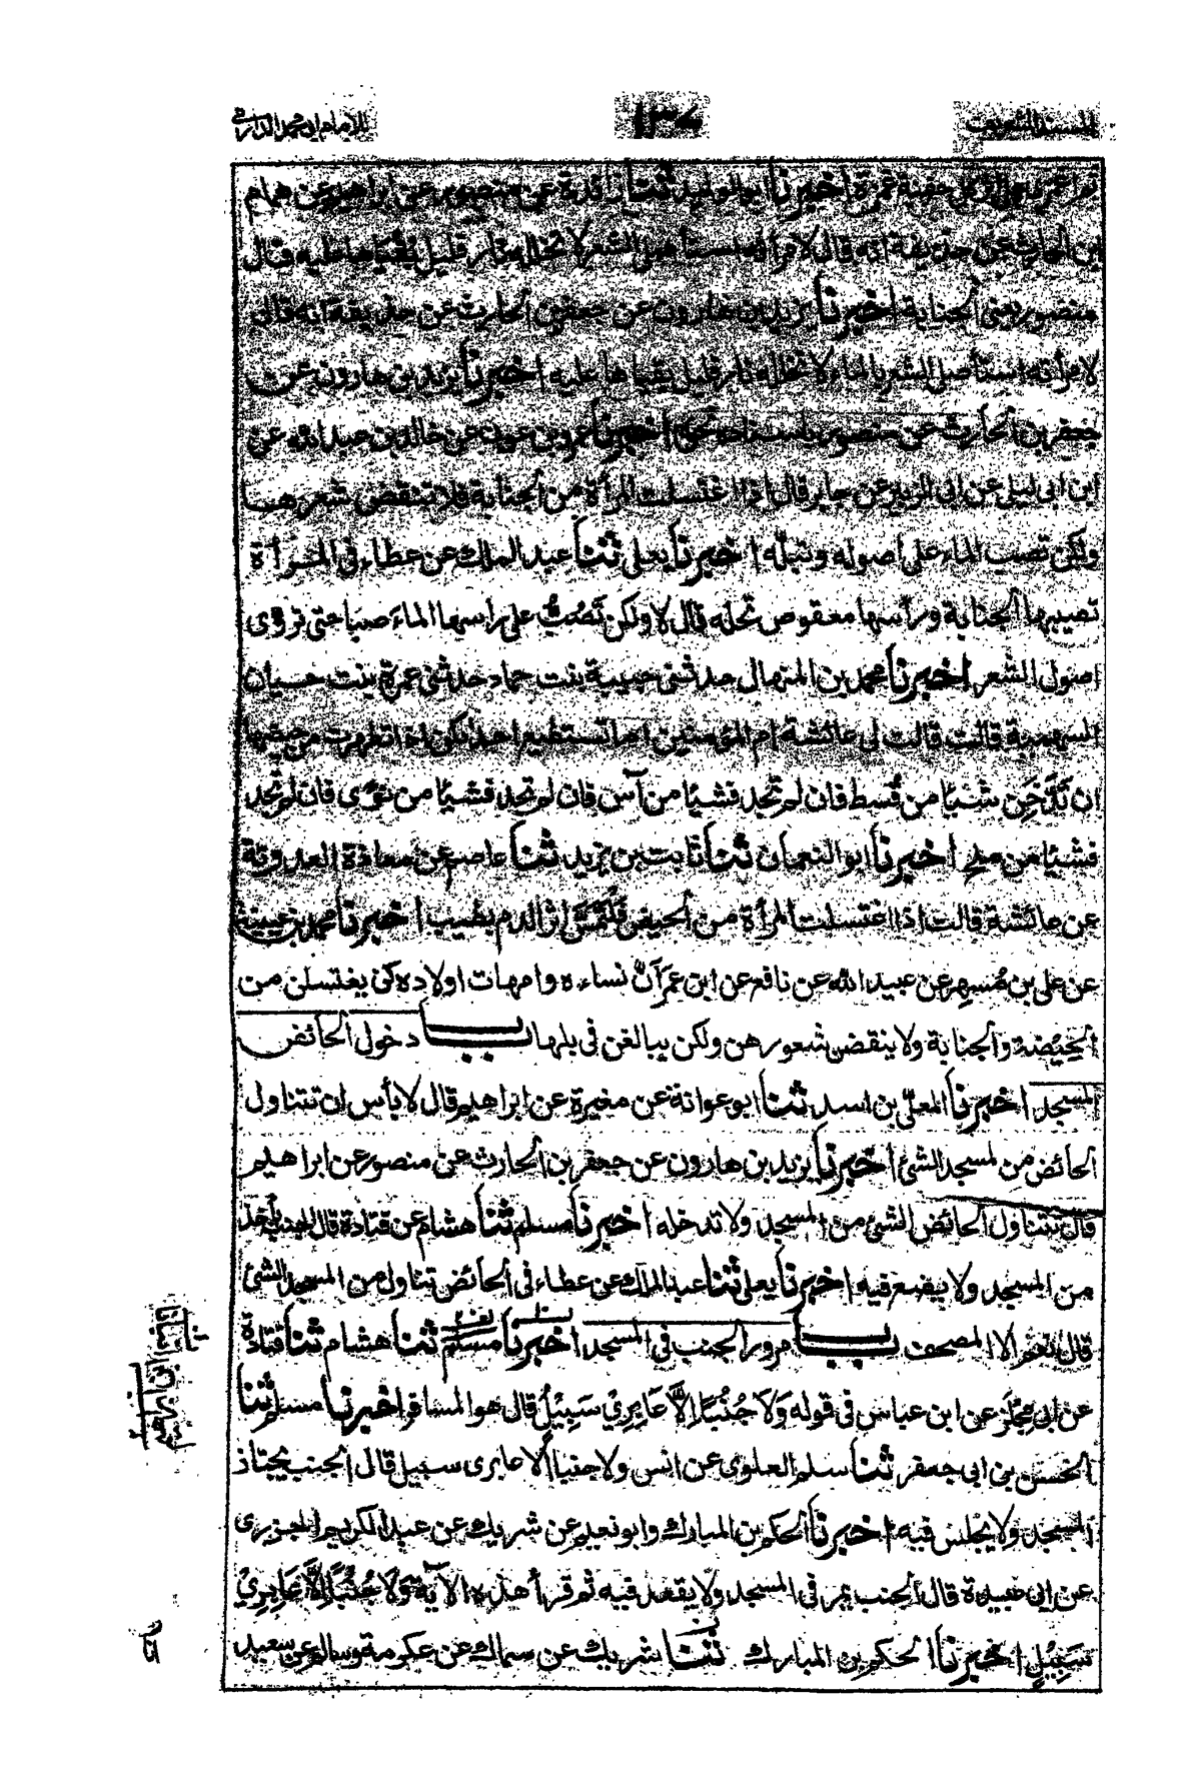 المسند الشريف
١٣٧
للامام ابي محمد الدارمي
اخبرنا ابو الوليد ثنا زائدة عن منصور عن ابراهيم عن همام
بن الحارث عن حذيفة انه قال لامرأته الشعر لا تخلله نار قليل بقياها عليه قال
منصور يعني الجنابة اخبرنا يزيد بن هارون عن جعفر بن الحارث عن حذيفة انه قال
لامرأته استأصلي الشعر بالماء لا تخلله نار قليل بقياها عليه اخبرنا يزيد بن هارون عن
جعفر بن الحارث عن منصور باسناده نحوه اخبرنا عمرو بن عون عن خالد بن عبد الله عن
ابن ابي ليلى عن ابي الزبير عن جابر قال اذا اغتسلت المرأة من الجنابة فلا تنقض شعرها
ولكن تصب الماء على اصوله وتبله اخبرنا يعلى ثنا عبد الملك عن عطاء في المرأة
تصيبها الجنابة ورأسها معقوص تحله قال لا ولكن تَصُبُّ على رأسها الماء صبا حتى تروى
اصول الشعر اخبرنا محمد بن المنهال حدثتني حبيبة بنت حماد حدثتني عمرة بنت حسيان
السهمية قالت قالت لي عائشة ام المؤمنين اما تستطيع احداكن اذا تطهرت من حيضها
ان تَدَّخِن شيئا من قُسط فان لم تجد فشيئا من آس فان لم تجد فشيئا من نوى فان لم تجد
فشيئا من ملح اخبرنا ابو النعمان ثنا ثابت بن يزيد ثنا عاصم عن معاذة العدوية
عن عائشة قالت اذا اغتسلت المرأة من الحيض فلْتمَسَّ اثر الدم بطيب اخبرنا محمد بن عيينة
عن علي بن مُسهِر عن عبيد الله عن نافع عن ابن عمر أنَّ نساءه وامهات اولاده كن يغتسلن من
الحيضة والجنابة ولا ينقضن شعورهن ولكن يبالغن في بلها باب دخول الحائض
المسجد اخبرنا المعلّى بن اسد ثنا ابو عوانة عن مغيرة عن ابراهيم قال لا بأس ان تتناول
الحائض من المسجد الشئ اخبرنا يزيد بن هارون عن جعفر بن الحارث عن منصور عن ابراهيم
قال تتناول الحائض الشئ من المسجد ولا تدخله اخبرنا مسلم ثنا هشام عن قتادة قال الجنب يأخذ
من المسجد ولا يضع فيه اخبرنا يعلى ثنا عبد الملك عن عطاء في الحائض تتناول من المسجد الشئ
قال نعم الا المصحف باب مرور الجنب في المسجد اخبرنا مسلم ثنا هشام ثنا قتادة
عن ابي مجلز عن ابن عباس في قوله وَلَا جُنُبًا إِلَّا عَابِرِيْ سَبِيْلٍ قال هو المسافر اخبرنا مسلم ثنا
الحسن بن ابي جعفر ثنا سلم العلوي عن انس ولا جنبا الا عابري سبيل قال الجنب يجتاز
المسجد ولا يجلس فيه اخبرنا الحكم بن المبارك وابو نعيم عن شريك عن عبد الكريم الجزري
عن ابي عبيدة قال الجنب يمر في المسجد ولا يقعد فيه ثم قرأ هذه الآية وَلَا جُنُبًا إِلَّا عَابِرِيْ
سَبِيْلٍ اخبرنا الحكم بن المبارك ثنا شريك عن سماك عن عكرمة وسالم عن سعيد